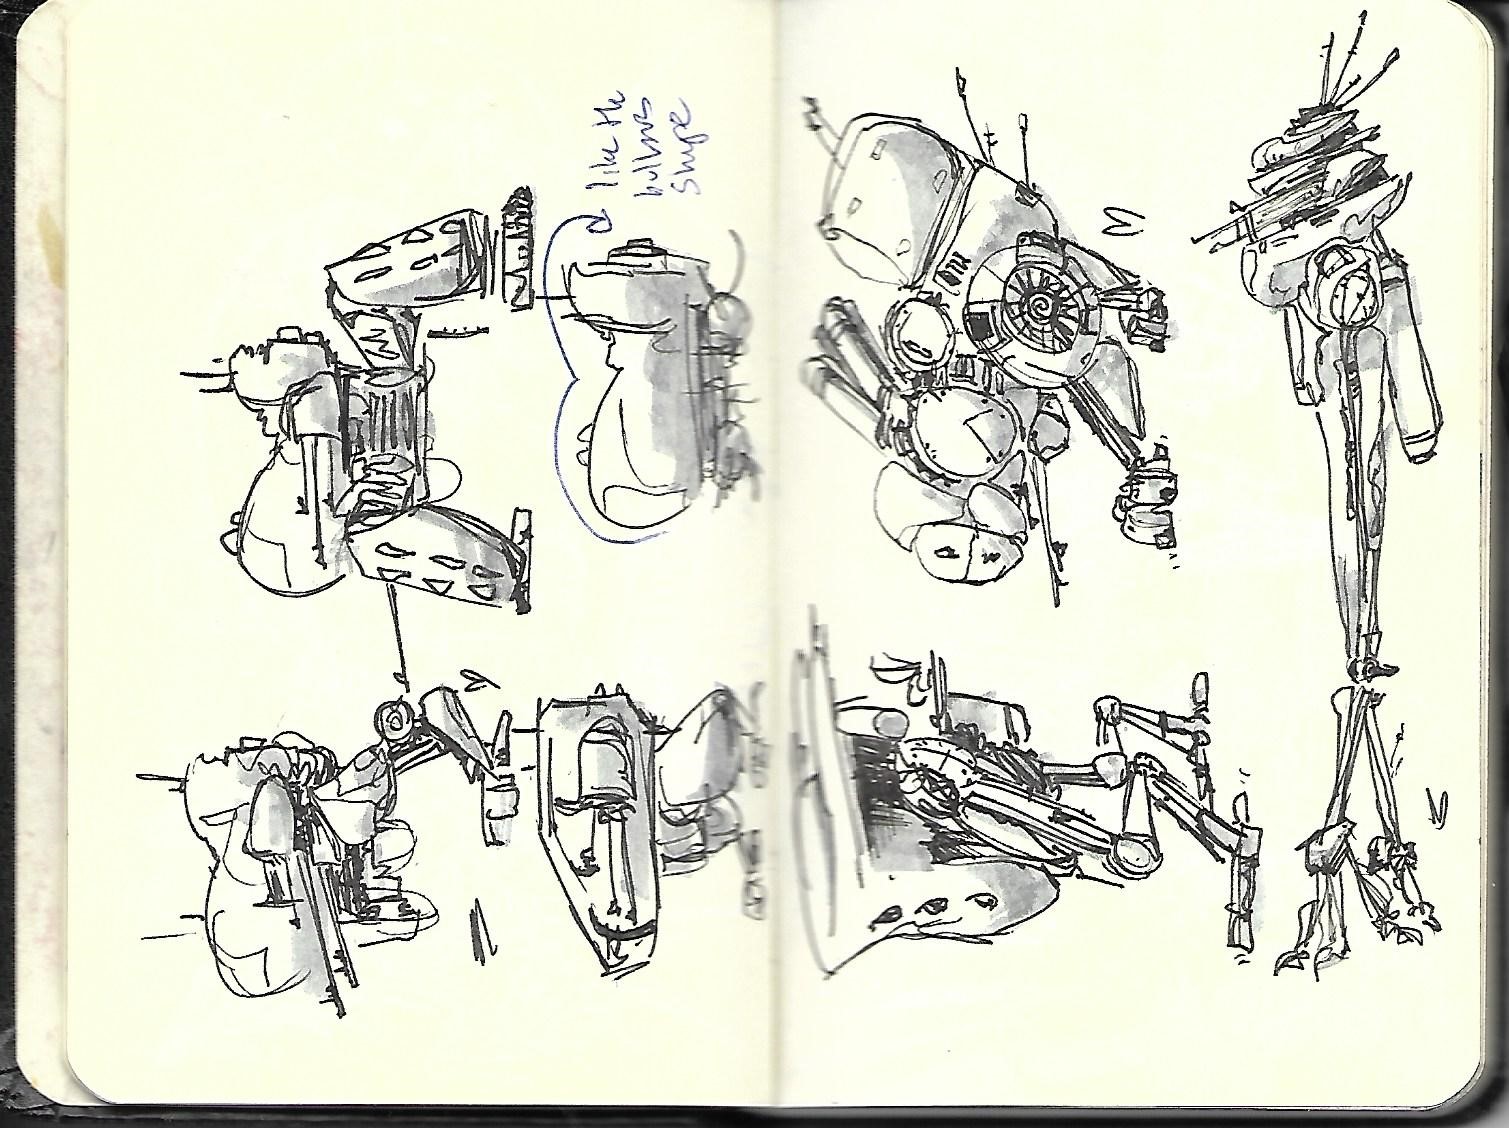 like the
bulbous
shape